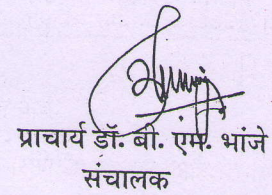 प्राचार्य डॉ. बी. एम. भांजे
संचालक